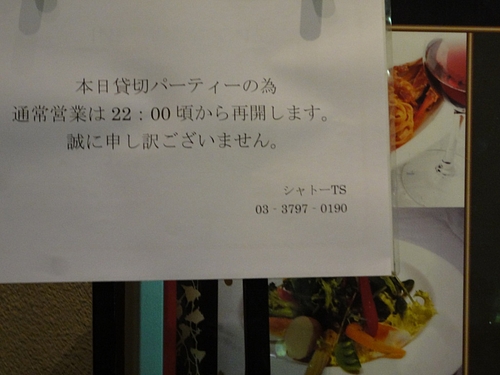 本日貸切パーティーの為
通常営業は 22：00 頃から再開します。
誠に申し訳ございません。
シャトーTS
03‐3797‐0190